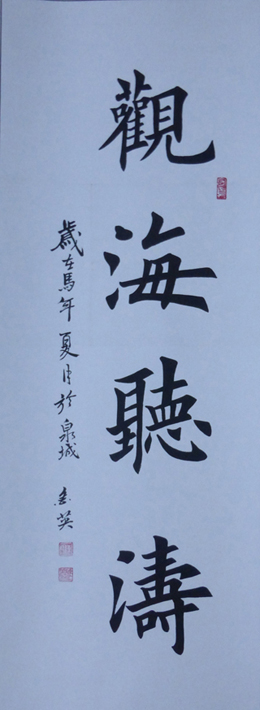 觀海聽濤
歲在馬年夏月於泉城 英